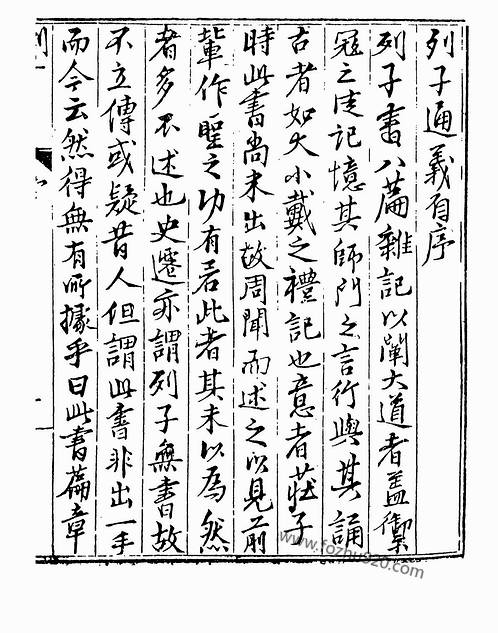 列子通義有序
列子書八篇雜記以闡大道者盖禦
冦之徒記憶其師門之言行與其誦
古者如大小戴之禮記也意者莊子
時此書尚未出故周聞而述之以見前
軰作聖之功有若此者其未以為然
者多不述也史遷亦謂列子無書故
不立傳或疑昔人但謂此書非出一手
而今云然得無有所據乎曰此書篇章
www.fozhu920.com